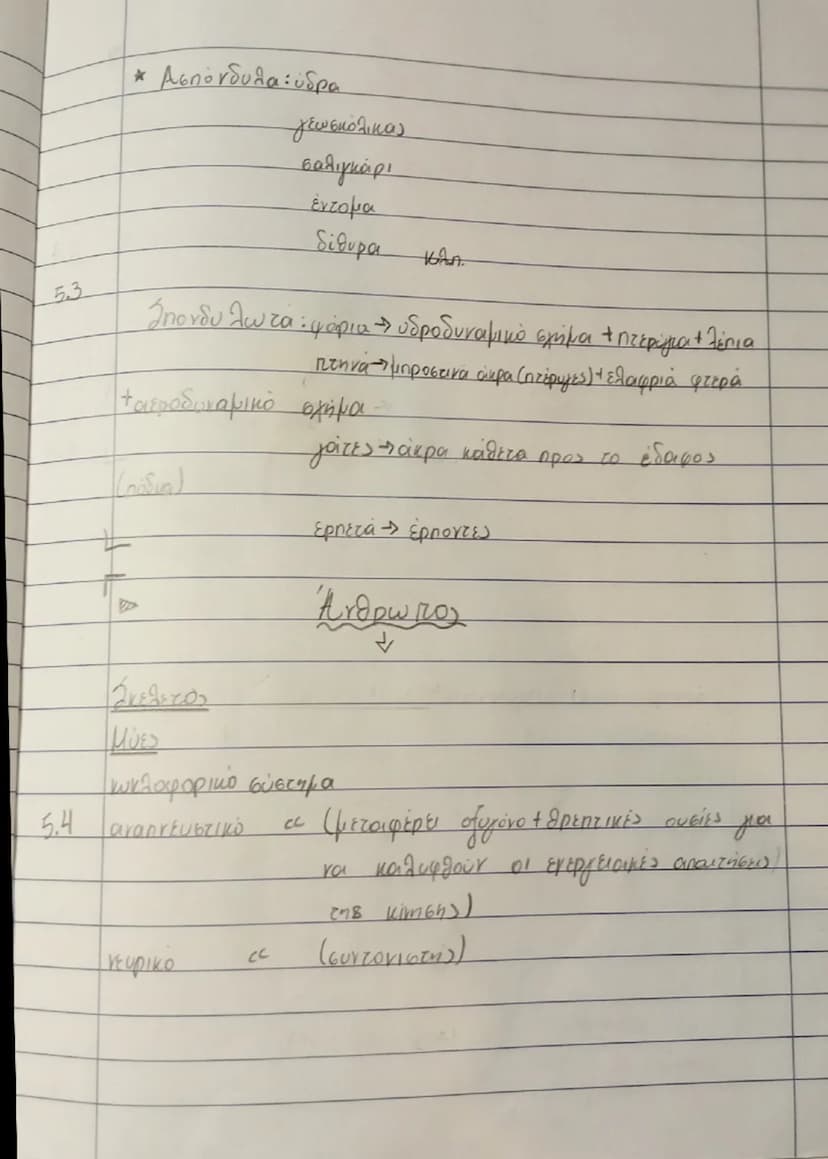 * Ασπόνδυλα: ύδρα
γεωσκώληκας
σαλιγκάρι
έντομα
δίθυρα κλπ.
5.3
Σπονδυλωτά: ψάρια → υδροδυναμικό σχήμα + πτερύγια + λέπια
πτηνά → μπροστινά άκρα (πτέρυγες) + ελαφριά φτερά
+ αεροδυναμικό σχήμα
γάτες → άκρα κάθετα προς το έδαφος
(πόδια)
ερπετά → έρποντες
Άνθρωπος
↓
Σκελετός
Μύες
κυκλοφορικό σύστημα
5.4 αναπνευστικό << (μεταφέρει οξυγόνο + θρεπτικές ουσίες για
να καλυφθούν οι ενεργειακές απαιτήσεις
της κίνησης)
νευρικό << (συντονιστής)